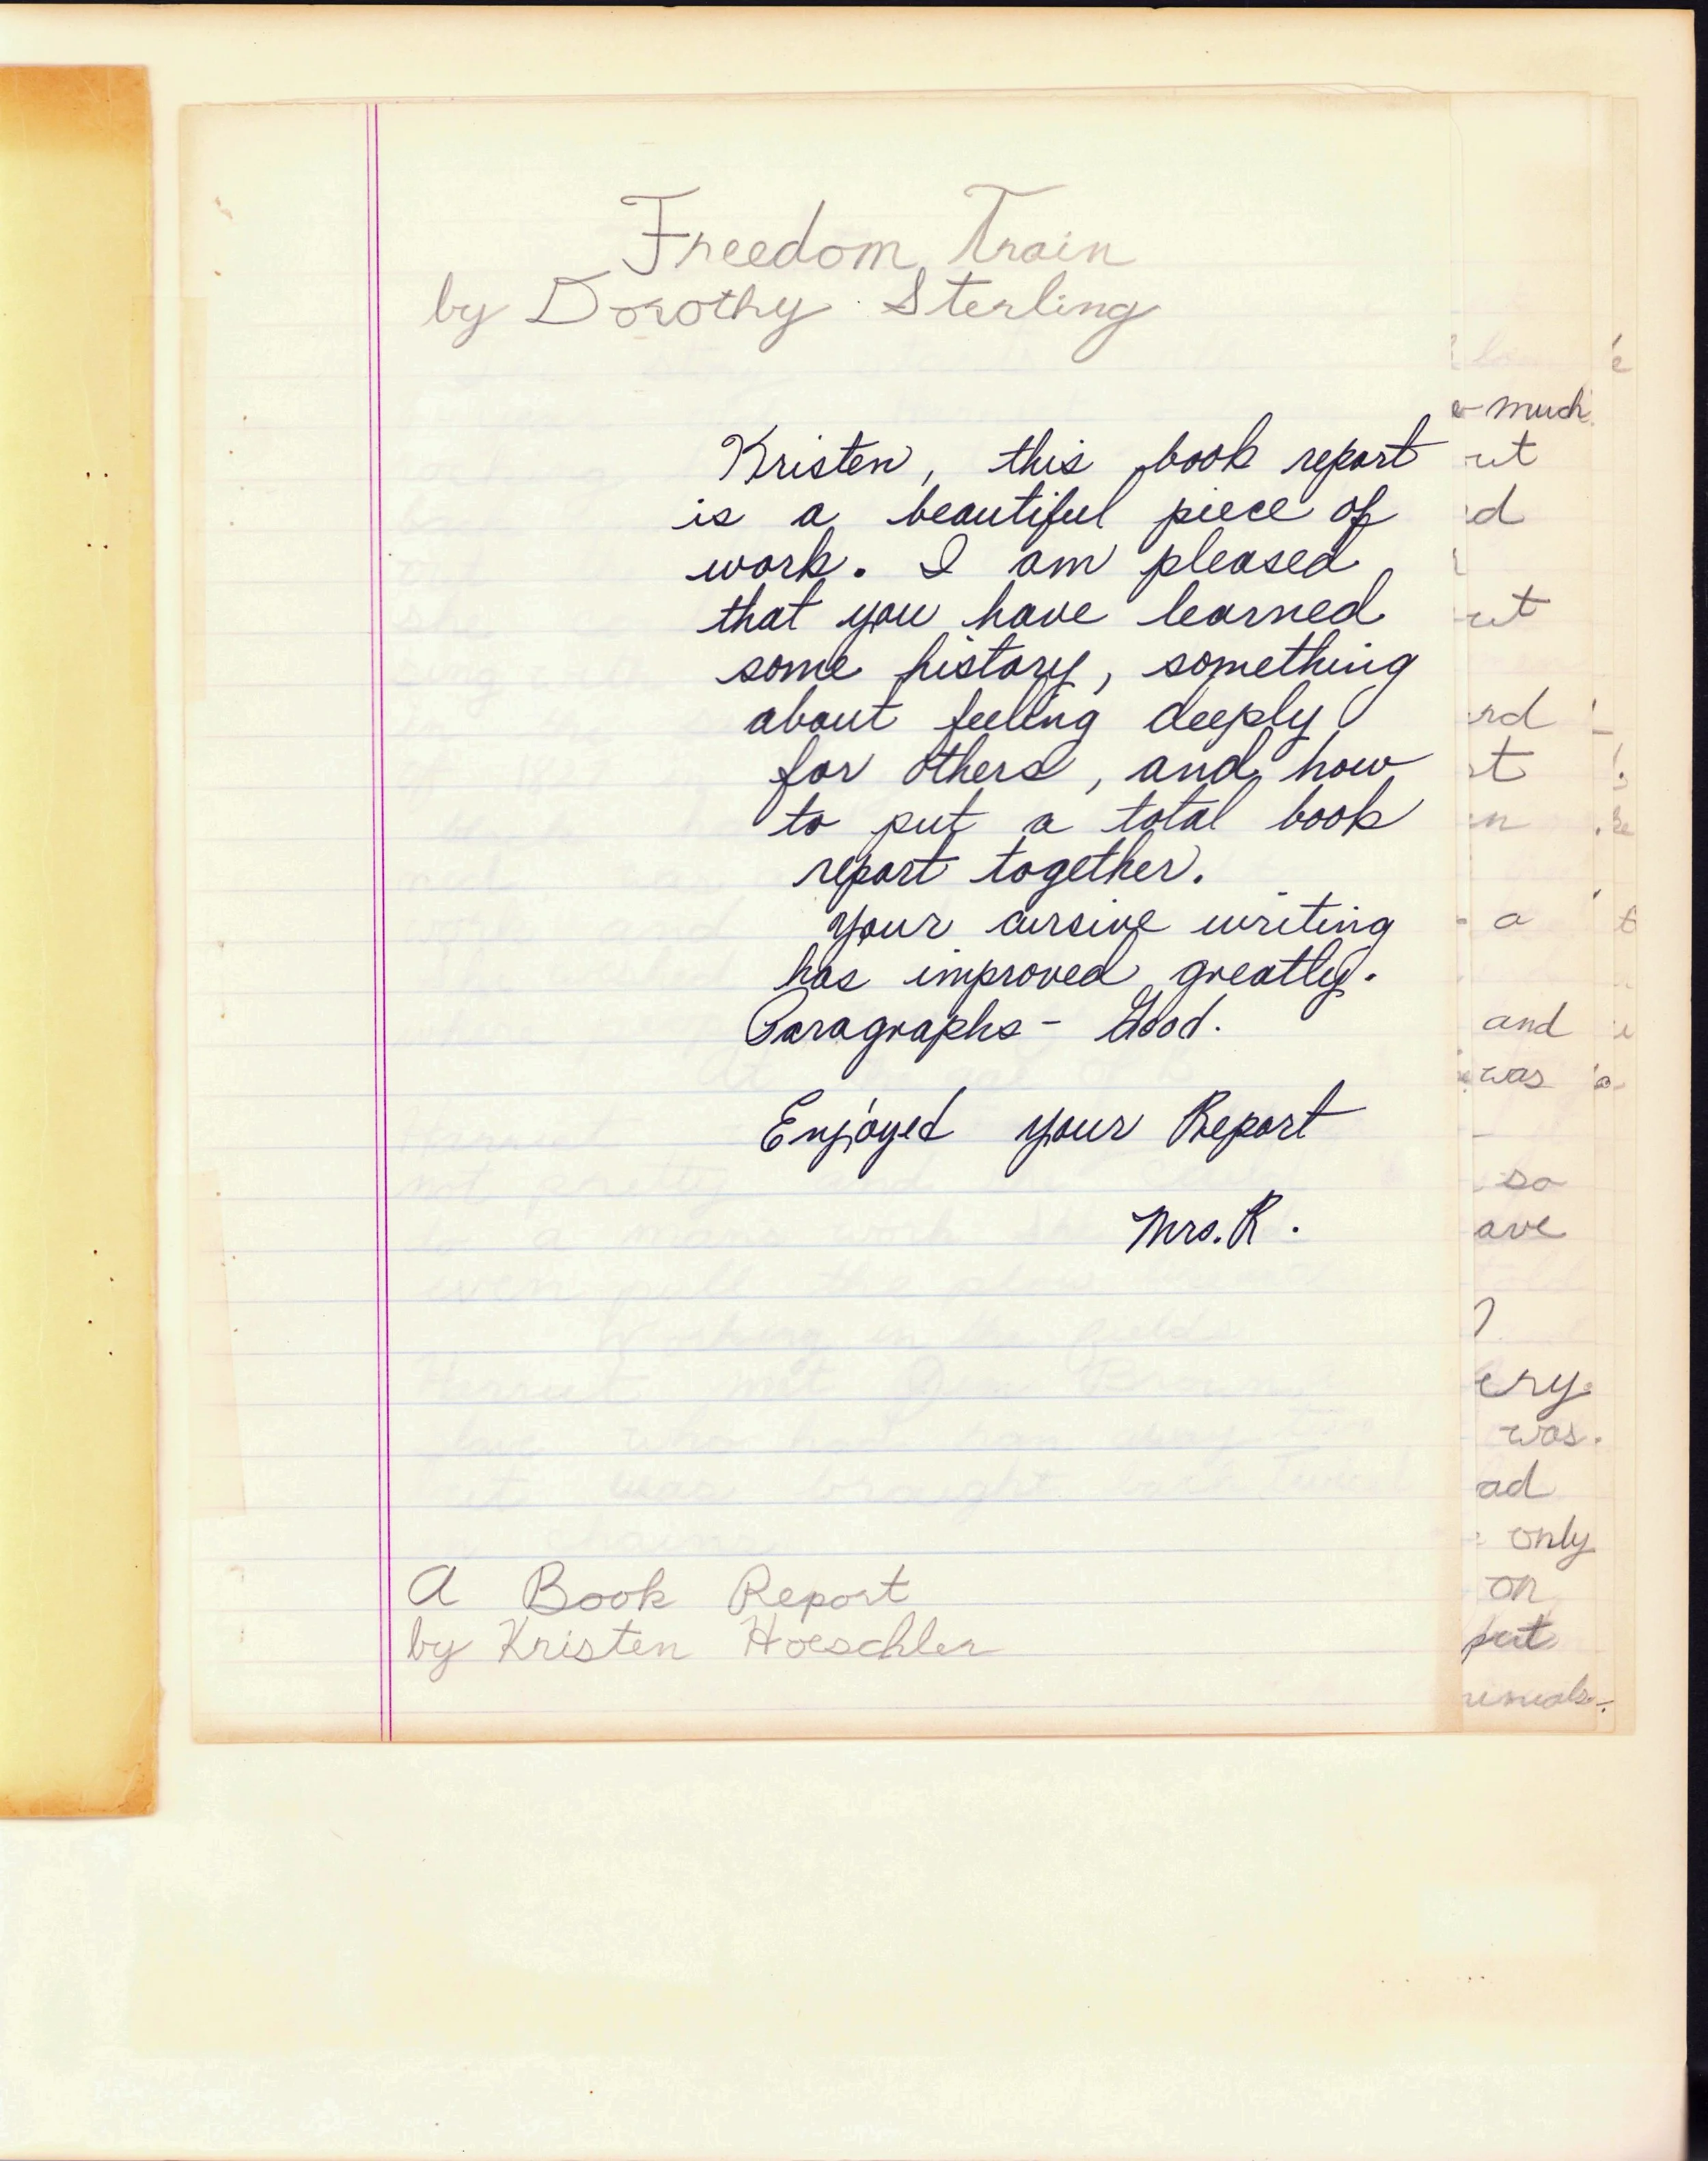 Freedom Train
by Dorothy Sterling
Kristen, this book report
is a beautiful piece of
work. I am pleased
that you have learned
some history, something
about feeling deeply
for others, and how
to put a total book
report together.
Your cursive writing
has improved greatly.
Paragraphs - Good.
Enjoyed your Report
Mrs. R.
A Book Report
by Kristen Hoeschler
much
and
was
so
was.
only
on
put